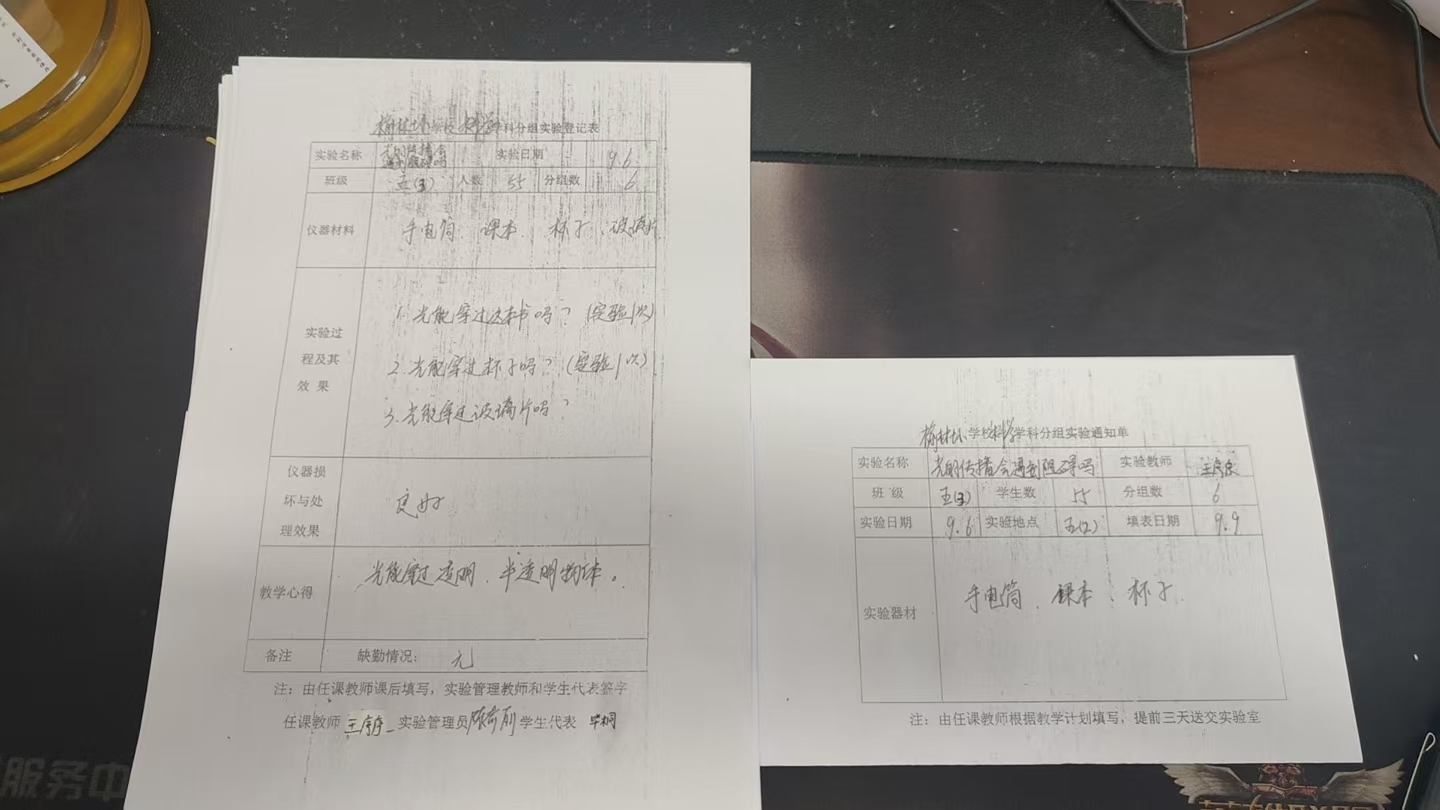 学校科学学科分组实验登记表
实验名称 光的传播会遇到阻碍吗 实验日期 9.6
班级 五(3) 人数 55 分组数 6
仪器材料 手电筒、课本、杯子、玻璃片
实验过程及其效果
1.光能穿过这本书吗?(实验1次)
2.光能穿过杯子吗?(实验1次)
3.光能穿过玻璃片吗?
仪器损坏与处理效果 良好
教学心得 光能穿过透明、半透明物体。
备注 缺勤情况: 无
注:由任课教师课后填写,实验管理教师和学生代表签字
任课教师 实验管理员 学生代表
学校科学学科分组实验通知单
实验名称 光的传播会遇到阻碍吗 实验教师
班 级 五(3) 学生数 55 分组数 6
实验日期 9.6 实验地点 五(2) 填表日期 9.9
实验器材 手电筒、课本、杯子.
注:由任课教师根据教学计划填写,提前三天送交实验室
服务中